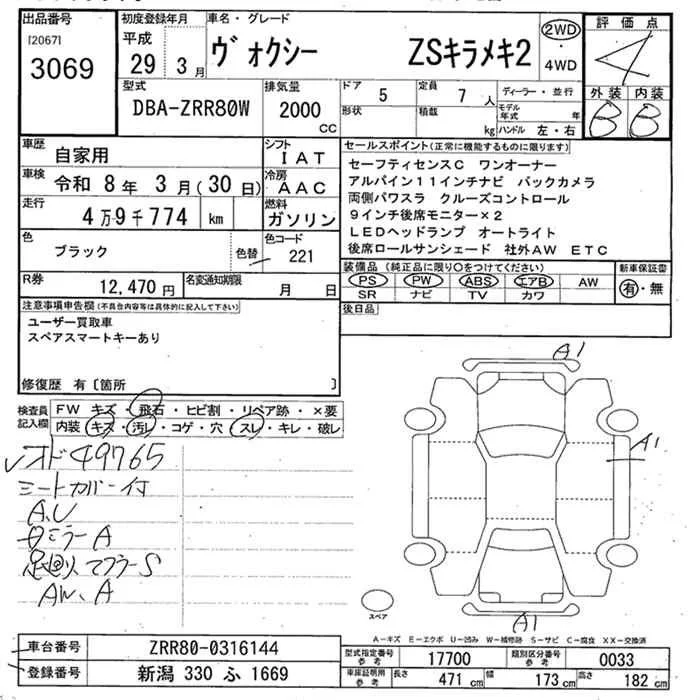 出品番号
[2067]
3069
初度登録年月
平成
29 3月
車名・グレード
ヴォクシー ZSキラメキ2
2WD
・
4WD
評価点
4
外装 内装
B B
型式
DBA-ZRR80W
排気量
2000
CC
ドア 5
形状
定員 7 人
積載 kg
ディーラー・並行
モデル年式 年
ハンドル 左・右
車歴
自家用
シフト
IAT
車検
令和 8年 3月(30日)
冷房
AAC
走行
4万9千774 km
燃料
ガソリン
色
ブラック
色替
色コード
221
R券
12,470 円
名変通知期限
月 日
セールスポイント(正常に機能するものに限ります)
セーフティセンスC ワンオーナー
アルパイン11インチナビ バックカメラ
両側パワスラ クルーズコントロール
9インチ後席モニター×2
LEDヘッドランプ オートライト
後席ロールサンシェード 社外AW ETC
装備品(純正品に限り○をつけてください)
PS PW ABS エアB AW
SR ナビ TV カワ
新車保証書
有・無
後日品
注意事項申告欄(不具合内容等は具体的に記入して下さい)
ユーザー買取車
スペアスマートキーあり
修復歴 有〔箇所 〕
検査員記入欄
FW キズ・飛石・ヒビ割・リペア跡・×要
内装 キズ・汚レ・コゲ・穴・スレ・キレ・破レ
オド49765
シートカバー付
A、U
ミラーA
足廻り マフラーS
AW、A
A1
A1
A1
スペア
A-キズ E-エクボ U-凹み W-補修跡 S-サビ C-腐食 XX-交換済
車台番号 ZRR80-0316144
登録番号 新潟 330 ふ 1669
型式指定番号 参考 17700
類別区分番号 参考 0033
車庫証明用 参考 長さ 471 cm 幅 173 cm 高さ 182 cm